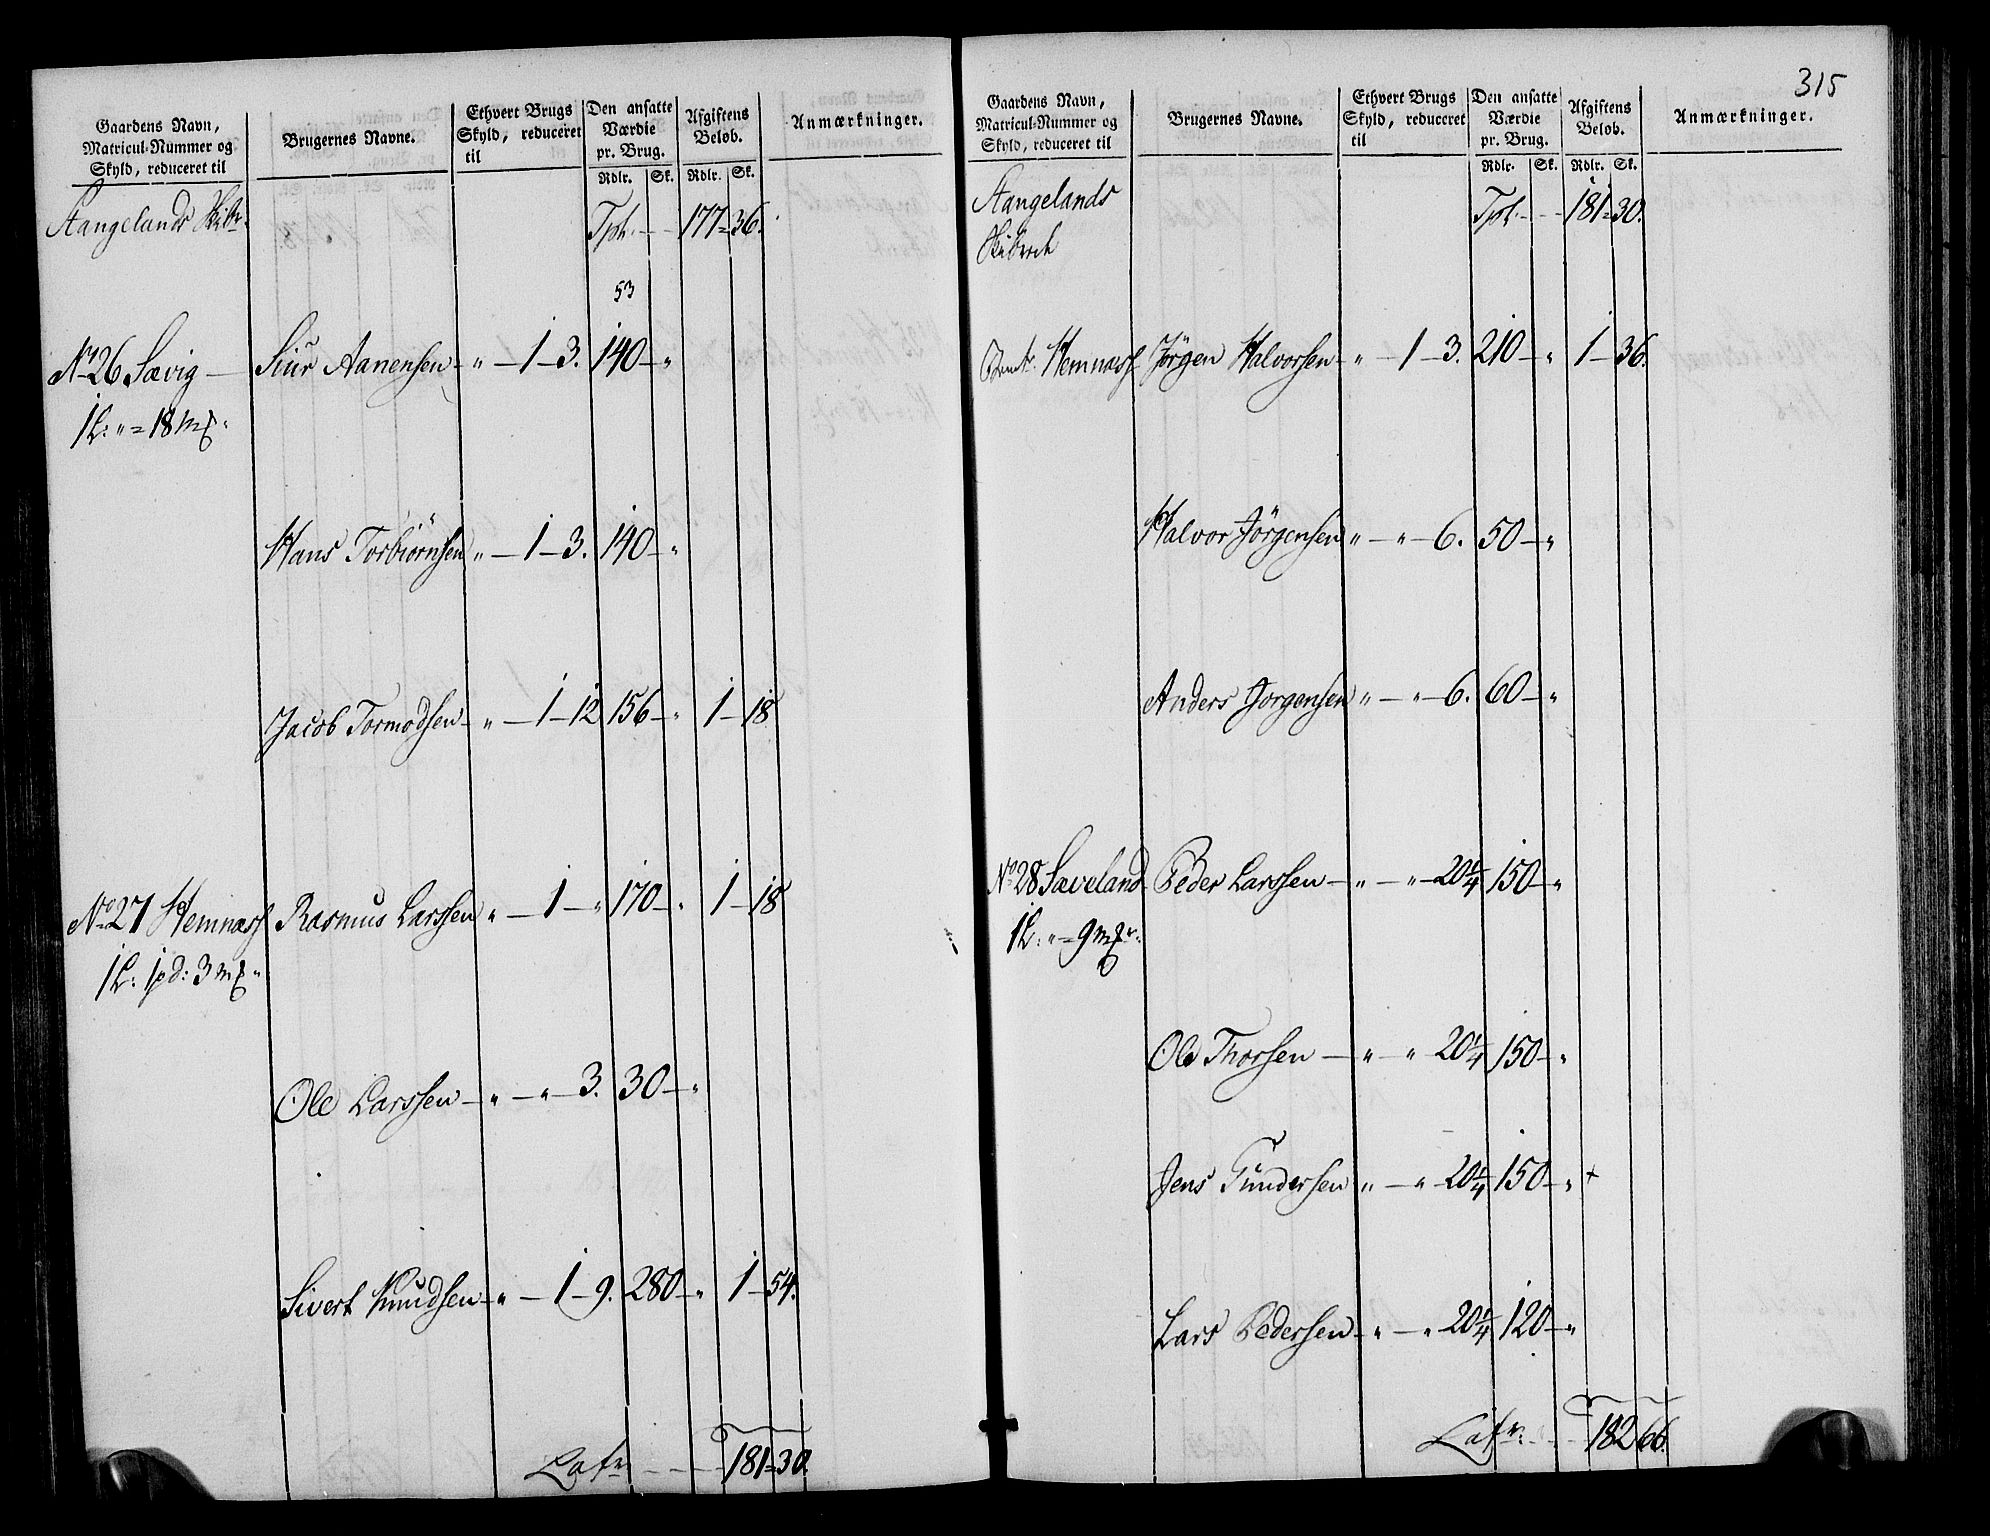 Gaardens Navn, Matricul-Nummer og Skyld, reduceret til
Brugernes Navne.
Ethvert Brugs Skyld, reduceret til
Den ansatte Værdie pr. Brug.
Afgiftens Beløb.
Anmærkninger.
Rdlr. Sk. Rdlr. Sk.
Stangelands Skibr. Tpt. - - 177 = 36.
53
No 26 Sævig — Siur Aanensen - " — 1 — 3. 140 — "
1 L: " = 18 mß.
Hans Torbiörnsen " — 1 — 3. 140 — "
Jacob Tormodsen - " — 1 — 12 156 — " 1 — 18
No 27 Hemnæss Rasmus Larssen " — 1 — " 170 — " 1 — 18
1 L: 1 pd: 3 mß.
Ole Larssen — " — " — 3. 30 — "
Sivert Knudsen — " — 1 — 9. 280 — " 1 — 54.
Lafr. - - - 181 = 30.
315
Gaardens Navn, Matricul-Nummer og Skyld, reduceret til
Brugernes Navne.
Ethvert Brugs Skyld, reduceret til
Den ansatte Værdie pr. Brug.
Afgiftens Beløb.
Anmærkninger.
Rdlr. Sk. Rdlr. Sk.
Stangelands Tpt. - - 181 = 30.
Skibrede
Hemnæss Jörgen Halvorsen — " — 1 — 3. 210 — " 1 — 36.
Halvor Jörgensen " — " — 6. 50 — "
Anders Jorgensen " — " — 6. 60 — "
No 28 Sæveland Peder Larssen — " — " — 20 1/4 150 — "
1 L: " = 9 mß.
Ole Thorsen — " — " 20 1/4 150 — "
Jens Gundersen " — " 20 1/4 150 — " +
Lars Pedersen — " — " 20 1/4 120 — "
Lafr. - - - 182 66.